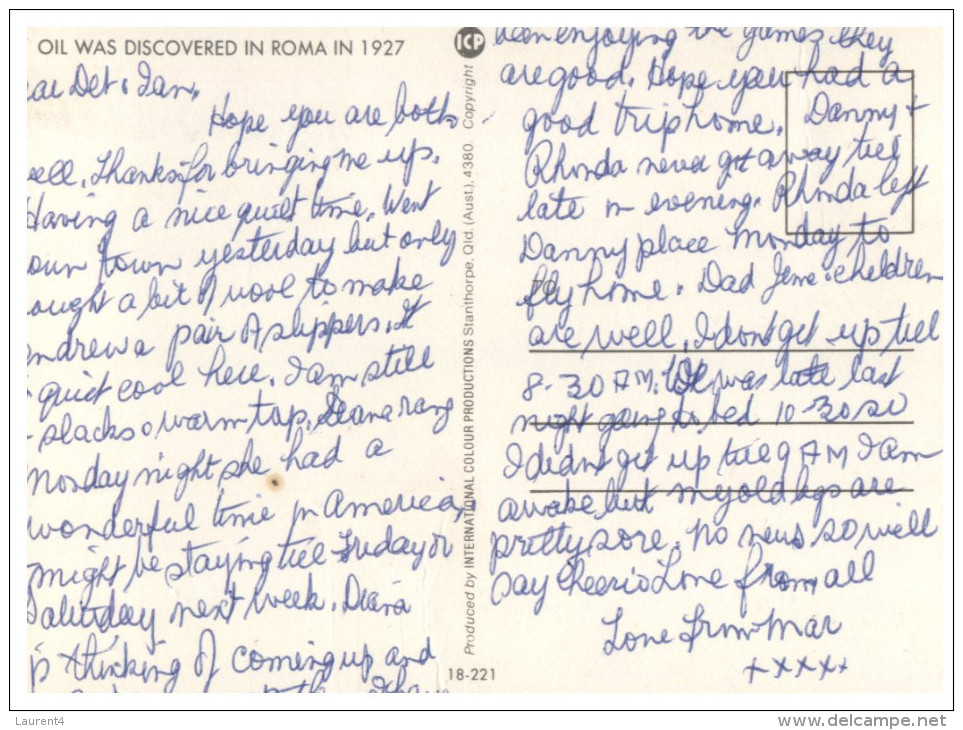 OIL WAS DISCOVERED IN ROMA IN 1927
ear Det & Ian,
Hope you are both
well. Thanks for bringing me up.
Having a nice quiet time. Went
down town yesterday but only
ought a bit of wool to make
andrew a pair of slippers. It
quiet cool here. I am still
slacks & warm top. Deana rang
Monday night she had a
wonderful time in America,
might be staying till Friday or
Saturday next week. Diana
is thinking of coming up and
ICP
Produced by INTERNATIONAL COLOUR PRODUCTIONS Stanthorpe, Qld. (Aust.), 4380. Copyright
18-221
been enjoying the games they
are good. Hope you had a
good trip home. Danny +
Rhonda never got away till
late in evening. Rhonda left
Danny place Monday to
fly home. Dad Jene & children
are well, I dont get up till
8-30 AM. was late last
night going to bed 10-30 so
I didnt get up till 9 AM I am
awake but my old legs are
pretty sore. No news so will
say Cheerio Love from all
Love From Mar
x x x x x
Laurent4
www.delcampe.net